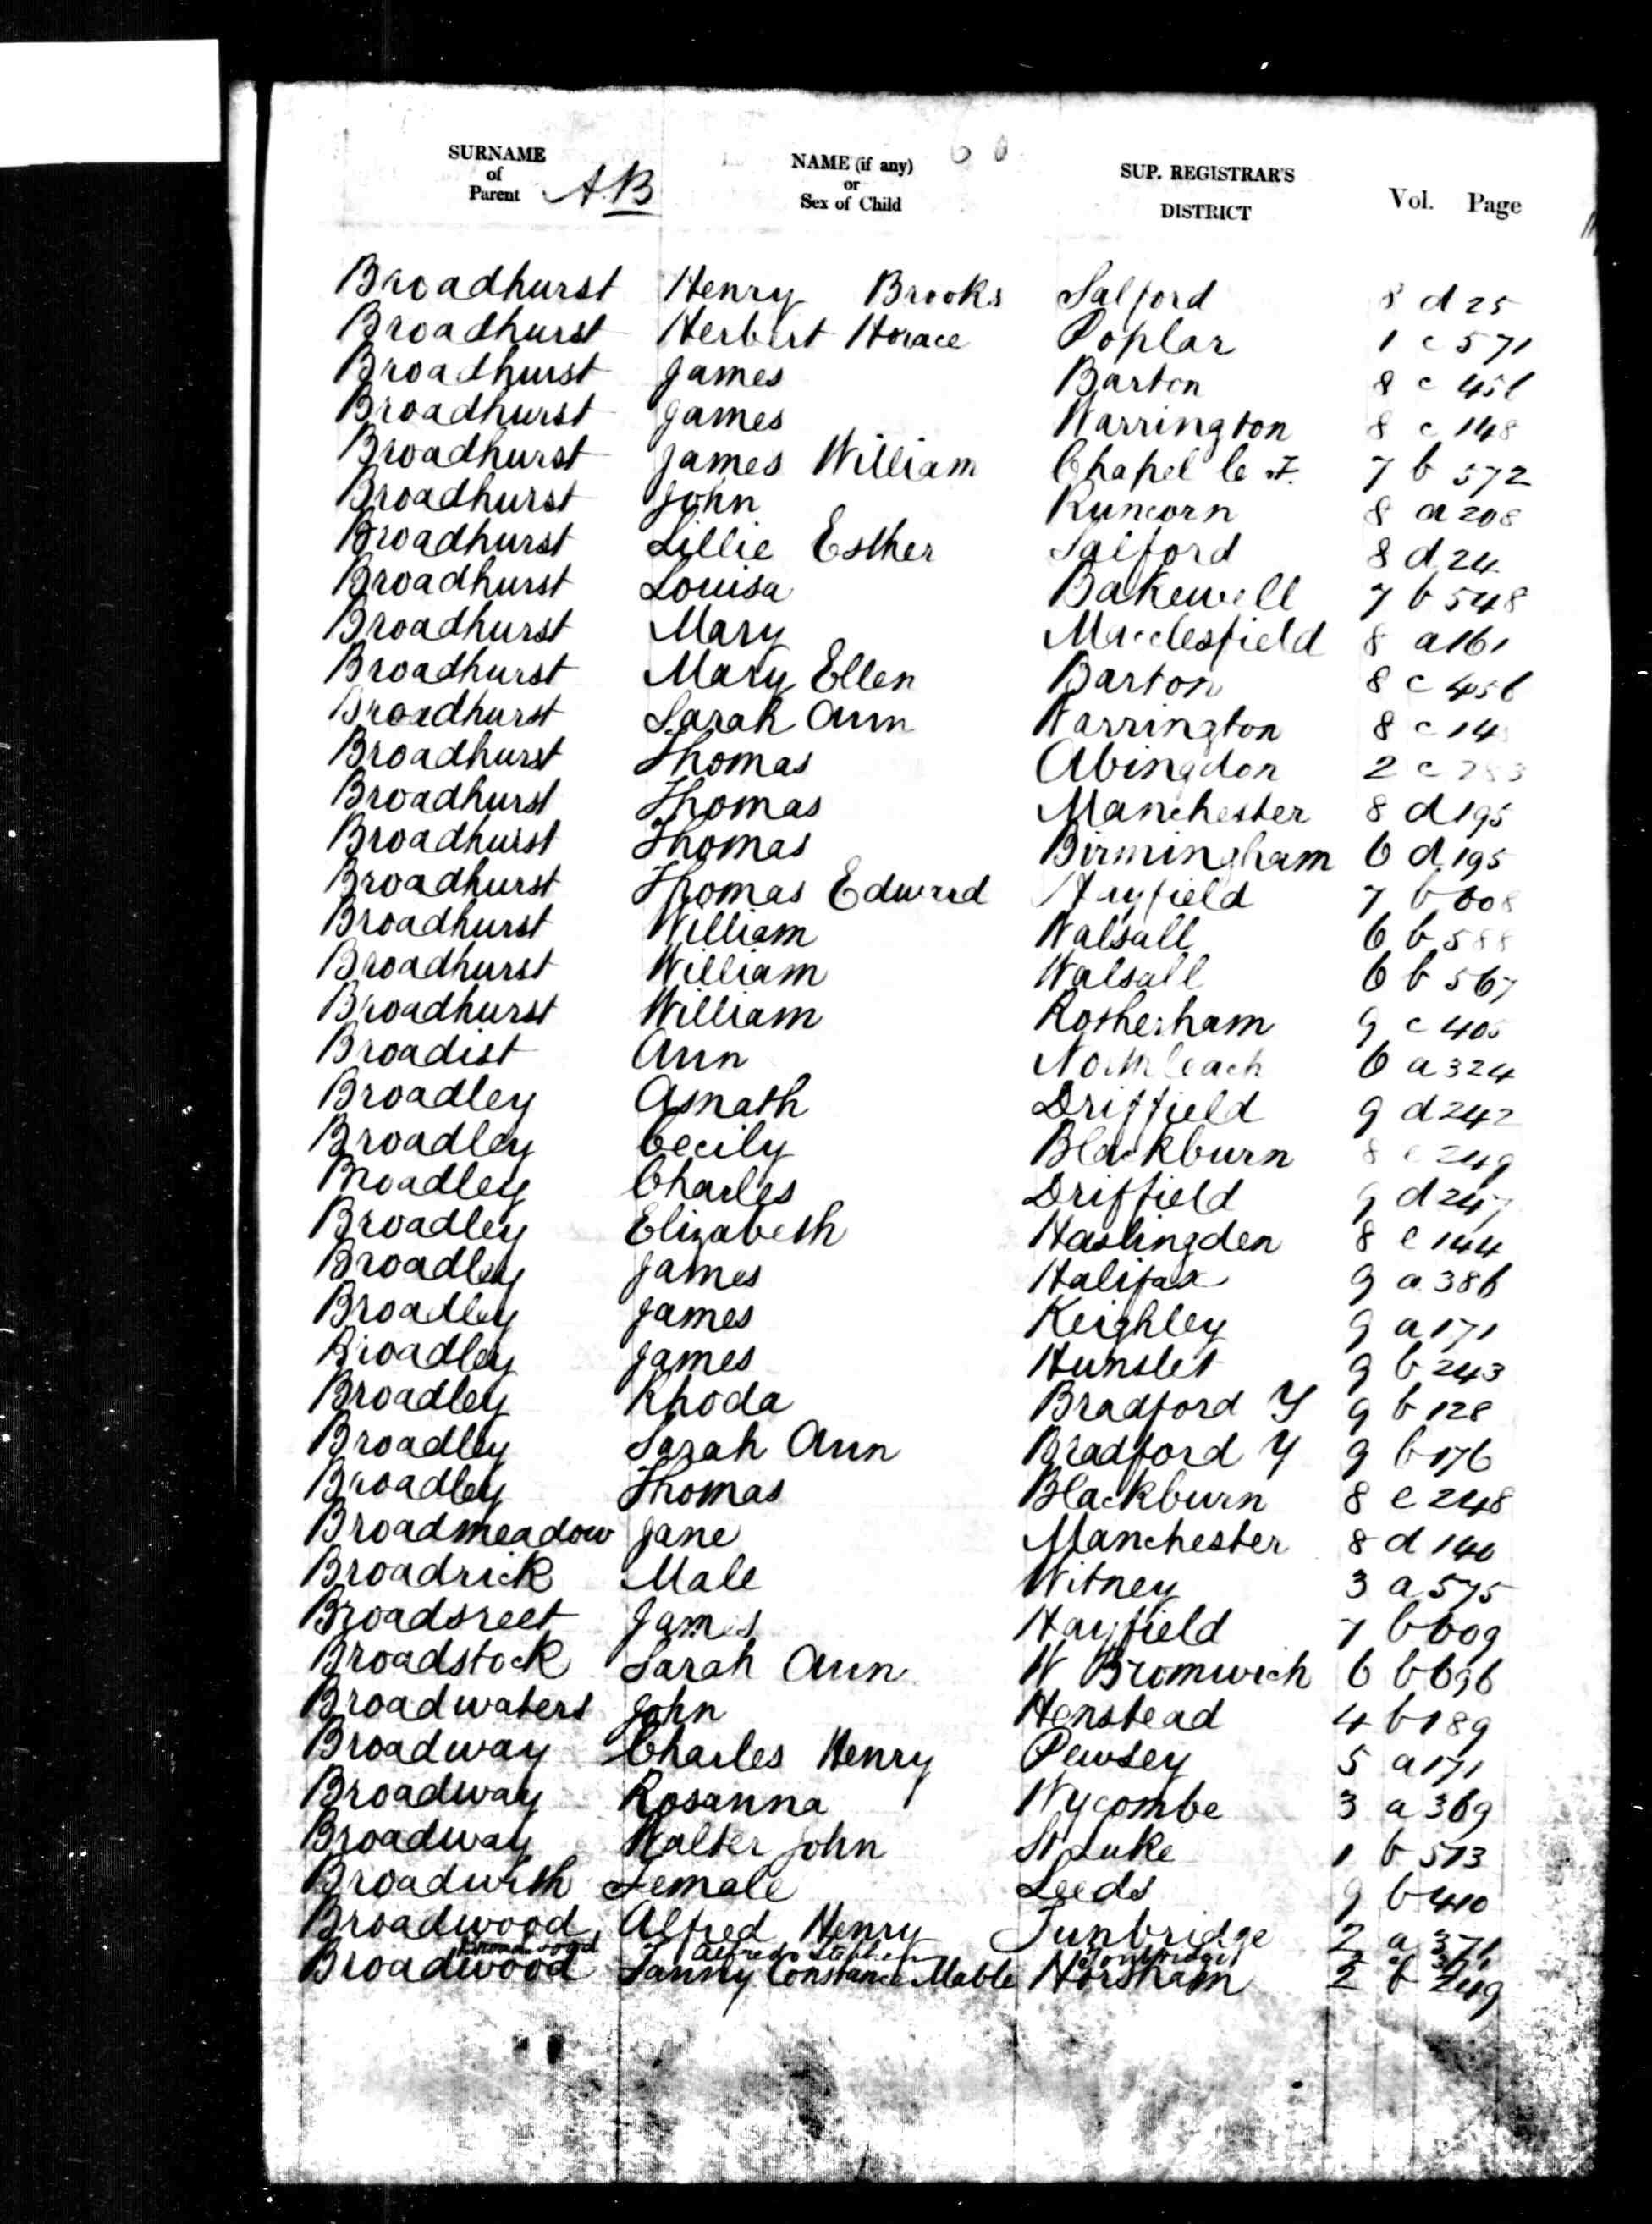 SURNAME of Parent A.B NAME (if any) or Sex of Child SUP. REGISTRAR'S DISTRICT Vol. Page
Broadhurst Henry Brooks Salford 8 d 25
Broadhurst Herbert Horace Poplar 1 c 571
Broadhurst James Barton 8 c 456
Broadhurst James Warrington 8 c 148
Broadhurst James William Chapel le F. 7 b 572
Broadhurst John Runcorn 8 a 208
Broadhurst Lillie Esther Salford 8 d 24
Broadhurst Louisa Bakewell 7 b 548
Broadhurst Mary Macclesfield 8 a 161
Broadhurst Mary Ellen Barton 8 c 456
Broadhurst Sarah Ann Warrington 8 c
Broadhurst Thomas Abingdon 2 c 283
Broadhurst Thomas Manchester 8 d 195
Broadhurst Thomas Birmingham 6 d 195
Broadhurst Thomas Edward Hayfield 7 b 608
Broadhurst William Walsall 6 b 588
Broadhurst William Walsall 6 b 567
Broadhurst William Rotherham 9 c 405
Broadist Ann Northleach 6 a 324
Broadley Asnath Driffield 9 d 242
Broadley Cecily Blackburn 8 e 249
Broadley Charles Driffield 9 d 247
Broadley Elizabeth Haslingden 8 e 144
Broadley James Halifax 9 a 386
Broadley James Keighley 9 a 171
Broadley James Hunslet 9 b 243
Broadley Rhoda Bradford Y 9 b 128
Broadley Sarah Ann Bradford Y 9 b 176
Broadley Thomas Blackburn 8 e 248
Broadmeadow Jane Manchester 8 d 140
Broadrick Male Witney 3 a 575
Broadsreet James Hayfield 7 b 609
Broadstock Sarah Ann W Bromwich 6 b 696
Broadwaters John Henstead 4 b 189
Broadway Charles Henry Pewsey 5 a 171
Broadway Rosanna Wycombe 3 a 369
Broadway Walter John St Luke 1 b 513
Broadwith Female Leeds 9 b 410
Broadwood Alfred Henry Tunbridge 2 a 371
Broadwood Alfred Stephen Tonbridge 2 a 371
Broadwood Fanny Constance Mable Horsham 2 b 249